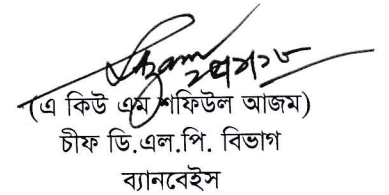 (এ কিউ এম শফিউল আজম)
চীফ ডি.এল.পি. বিভাগ
ব্যানবেইস